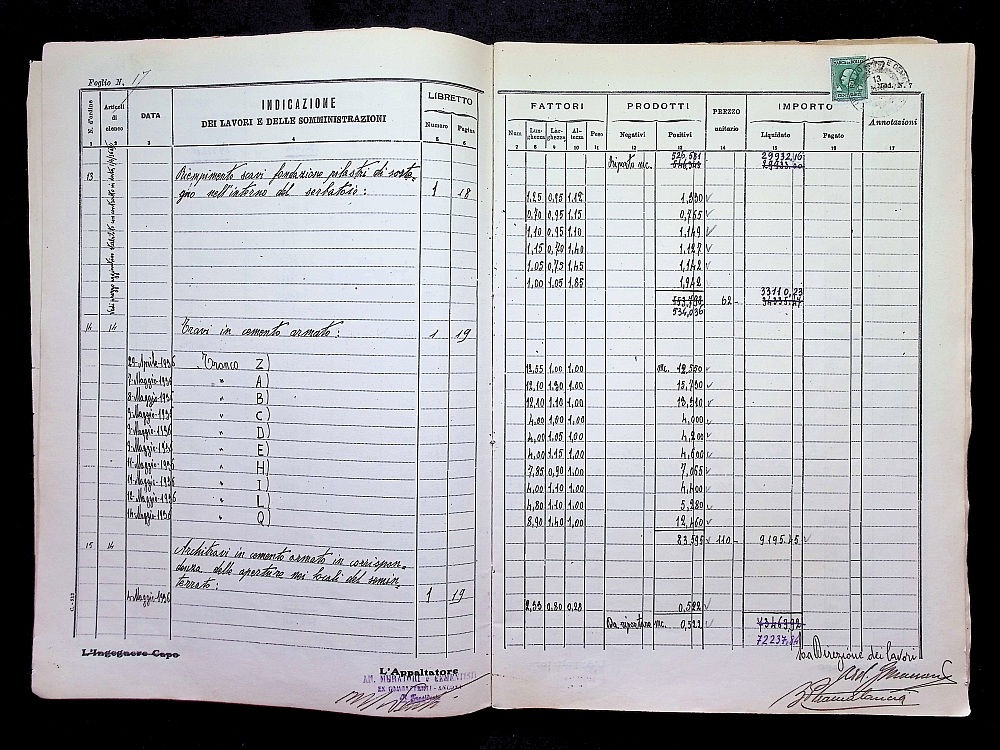 Foglio N. 17
N. d'ordine
Articoli di elenco
DATA
INDICAZIONE
DEI LAVORI E DELLE SOMMINISTRAZIONI
LIBRETTO
Numero Pagina
1 2 3 4 5 6
13 Riempimento scavi fondazione pilastri di soste-
gno nell'interno del serbatoio: 1 18
14 14 Travi in cemento armato: 1 19
Aprile 1936 Tronco Z)
7 Maggio 1936 " A)
8 Maggio 1936 " B)
9 Maggio 1936 " C)
9 Maggio 1936 " D)
9 Maggio 1936 " E)
11 Maggio 1936 " H)
11 Maggio 1936 " I)
12 Maggio 1936 " L)
14 Maggio 1936 " Q)
15 14 Architravi in cemento armato in corrispon-
denza delle aperture nei locali del semin-
terrato: 1 19
Maggio 1936
L'Ingegnere Capo
L'Appaltatore
Mod. N. 7
FATTORI PRODOTTI PREZZO unitario IMPORTO Annotazioni
Num Lun-ghezza Lar-ghezza Al-tezza Peso Negativi Positivi Liquidato Pagato
7 8 9 10 11 12 13 14 15 16 17
Riporto mc. 526,581 29932,16
1,25 0,95 1,12 1,330
0,70 0,95 1,15 0,765
1,10 0,95 1,10 1,149
1,15 0,70 1,40 1,127
1,05 0,75 1,45 1,142
1,00 1,05 1,85 1,942
33110,23
62-
534,036
12,55 1,00 1,00 mc. 12,550
12,10 1,30 1,00 15,730
12,10 1,10 1,00 13,310
4,00 1,00 1,00 4,000
4,00 1,05 1,00 4,200
4,00 1,15 1,00 4,600
7,85 0,90 1,00 7,065
4,00 1,10 1,00 4,400
4,80 1,10 1,00 5,280
8,90 1,40 1,00 12,460
83,595 110- 9195.45
2,33 0.80 0,28 0,522
Da riportare mc. 0,522 73463,92
72237,84
La Direzione dei lavori